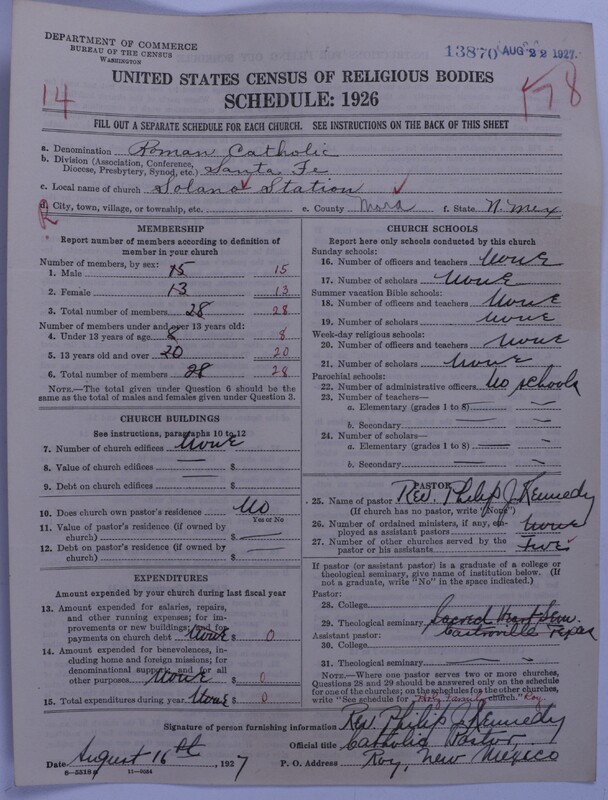 DEPARTMENT OF COMMERCE
BUREAU OF THE CENSUS
WASHINGTON
13870 AUG 22 1927
UNITED STATES CENSUS OF RELIGIOUS BODIES
SCHEDULE: 1926
14
178
FILL OUT A SEPARATE SCHEDULE FOR EACH CHURCH. SEE INSTRUCTIONS ON THE BACK OF THIS SHEET
a. Denomination Roman Catholic
b. Division (Association, Conference, Diocese, Presbytery, Synod, etc.) Santa Fe
c. Local name of church Solano Station
d. City, town, village, or township, etc. e. County Mora f. State N. Mex
MEMBERSHIP
Report number of members according to definition of
member in your church
Number of members, by sex:
1. Male 15 15
2. Female 13 13
3. Total number of members 28 28
Number of members under and over 13 years old:
4. Under 13 years of age 8 8
5. 13 years old and over 20 20
6. Total number of members 28 28
NOTE.—The total given under Question 6 should be
the same as the total of males and females given under Question 3.
CHURCH BUILDINGS
See instructions, paragraphs 10 to 12
7. Number of church edifices None
8. Value of church edifices $
9. Debt on church edifices $
10. Does church own pastor's residence? No
Yes or No
11. Value of pastor's residence (if owned by
church) $
12. Debt on pastor's residence (if owned by
church) $
EXPENDITURES
Amount expended by your church during last fiscal year
13. Amount expended for salaries, repairs,
and other running expenses; for im-
provements or new buildings; and for
payments on church debt None $ 0
14. Amount expended for benevolences,
including home and foreign missions; for
denominational support; and for all
other purposes None $ 0
15. Total expenditures during year None $ 0
CHURCH SCHOOLS
Report here only schools conducted by this church
Sunday schools:
16. Number of officers and teachers None
17. Number of scholars None
Summer vacation Bible schools:
18. Number of officers and teachers None
19. Number of scholars None
Week-day religious schools:
20. Number of officers and teachers None
21. Number of scholars None
Parochial schools:
22. Number of administrative officers No schools
23. Number of teachers—
a. Elementary (grades 1 to 8)
b. Secondary
24. Number of scholars—
a. Elementary (grades 1 to 8)
b. Secondary
PASTOR
25. Name of pastor Rev. Philip J. Kennedy
(If church has no pastor, write "None")
26. Number of ordained ministers, if any, em-
ployed as assistant pastors None
27. Number of other churches served by the
pastor or his assistants
If pastor (or assistant pastor) is a graduate of a college or
theological seminary, give name of institution below. (If
not a graduate, write "No" in the space indicated.)
Pastor:
28. College
29. Theological seminary Sacred Heart Sem.
Castroville Texas
Assistant pastor:
30. College
31. Theological seminary
NOTE.—Where one pastor serves two or more churches,
Questions 28 and 29 should be answered only on the schedule
for one of the churches; on the schedules for the other churches,
write "See schedule for Holy Family church." Roy
Signature of person furnishing information Rev. Philip J. Kennedy
Official title Catholic Pastor,
Date August 16th, 1927 P. O. Address Roy, New Mexico
8-5518a 11-9054